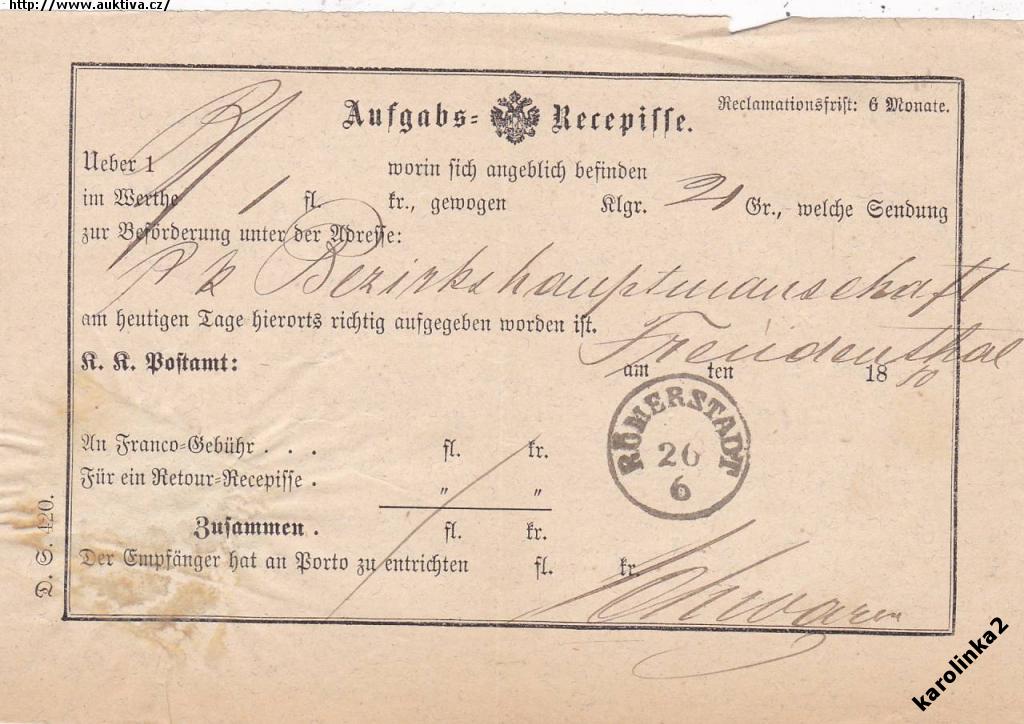 http://www.auktiva.cz/
Aufgabs- Recepisse.
Reclamationsfrist: 6 Monate.
Ueber 1 worin sich angeblich befinden
im Werthe 1 fl. kr., gewogen Klgr. 21 Gr., welche Sendung
zur Beförderung unter der Adresse:
Bezirkshauptmanschaft
am heutigen Tage hierorts richtig aufgegeben worden ist.
Freudenthal
K. K. Postamt:
am ten 18
RÖMERSTADT
26
6
An Franco-Gebühr . . . fl. kr.
Für ein Retour-Recepisse . " "
Zusammen . fl. kr.
Der Empfänger hat an Porto zu entrichten fl. kr.
D. S. 420.
karolinka2